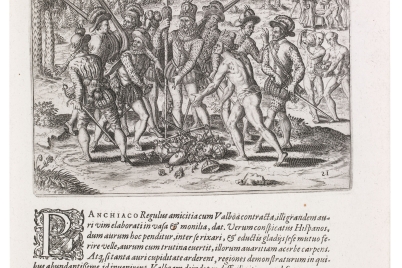 21
PANCHIACO Regulus amicitia cum Valboa contracta, illi grandem au-
ri vim elaborati in vasa & monilia, dat. Verum conspicatus Hispanos,
dum aurum hoc penditur, inter se rixari, & eductis gladijs sese mutuo fe-
rire velle, aurum cum trutina evertit, illorum avaritiam acerbe carpens.
Atq, si tanta auri cupiditate arderent, regiones demonstraturum in qui-
bus abundantissime id invenirent. Valboam